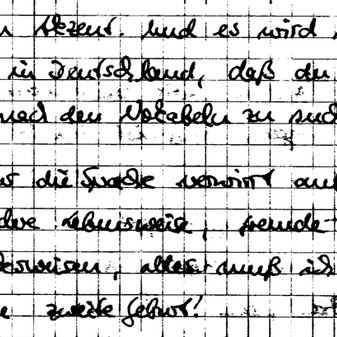 Akzent. Und es wird
in Deutschland, daß du
nach den Vokabeln zu
die Sprache verwirrt
Lebensweise, fremde
alles muß ich
zweite Geburt!